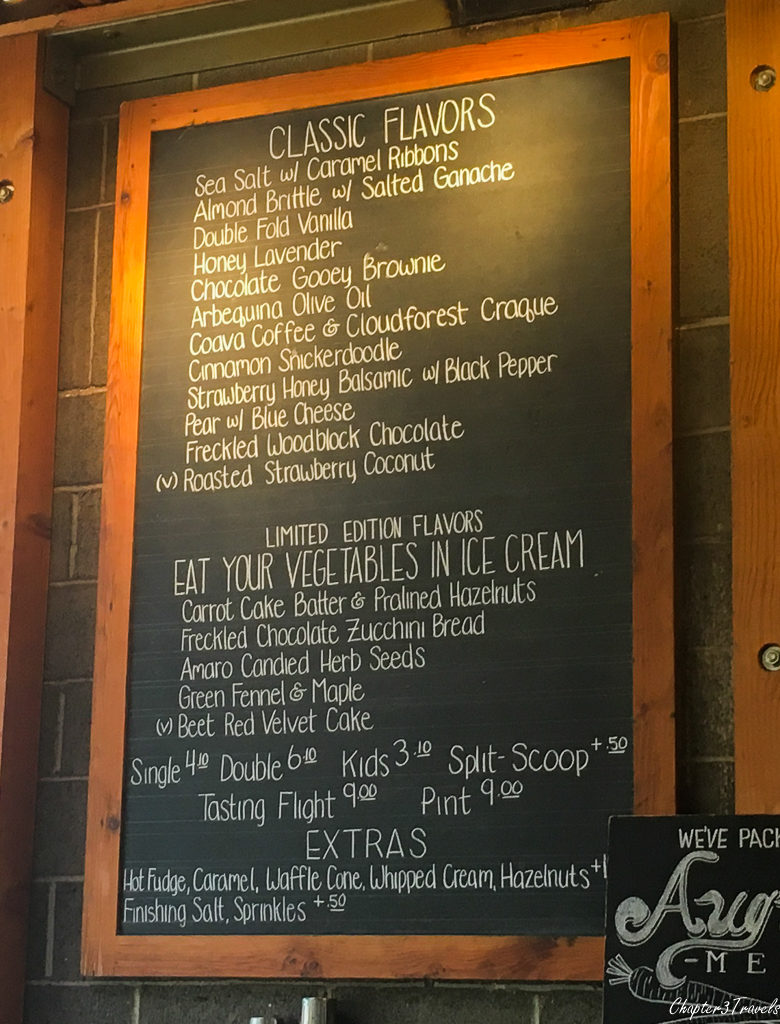 CLASSIC FLAVORS
Sea Salt w/ Caramel Ribbons
Almond Brittle w/ Salted Ganache
Double Fold Vanilla
Honey Lavender
Chocolate Gooey Brownie
Arbequina Olive Oil
Coava Coffee & Cloudforest Craque
Cinnamon Snickerdoodle
Strawberry Honey Balsamic w/ Black Pepper
Pear w/ Blue Cheese
Freckled Woodblock Chocolate
(v) Roasted Strawberry Coconut
LIMITED EDITION FLAVORS
EAT YOUR VEGETABLES IN ICE CREAM
Carrot Cake Batter & Pralined Hazelnuts
Freckled Chocolate Zucchini Bread
Amaro Candied Herb Seeds
Green Fennel & Maple
(v) Beet Red Velvet Cake
Single 4.10 Double 6.10 Kids 3.10 Split-Scoop +.50
Tasting Flight 9.00 Pint 9.00
EXTRAS
Hot Fudge, Caramel, Waffle Cone, Whipped Cream, Hazelnuts +1
Finishing Salt, Sprinkles +.50
WE'VE PACK
Aug
-ME
Chapter3Travels